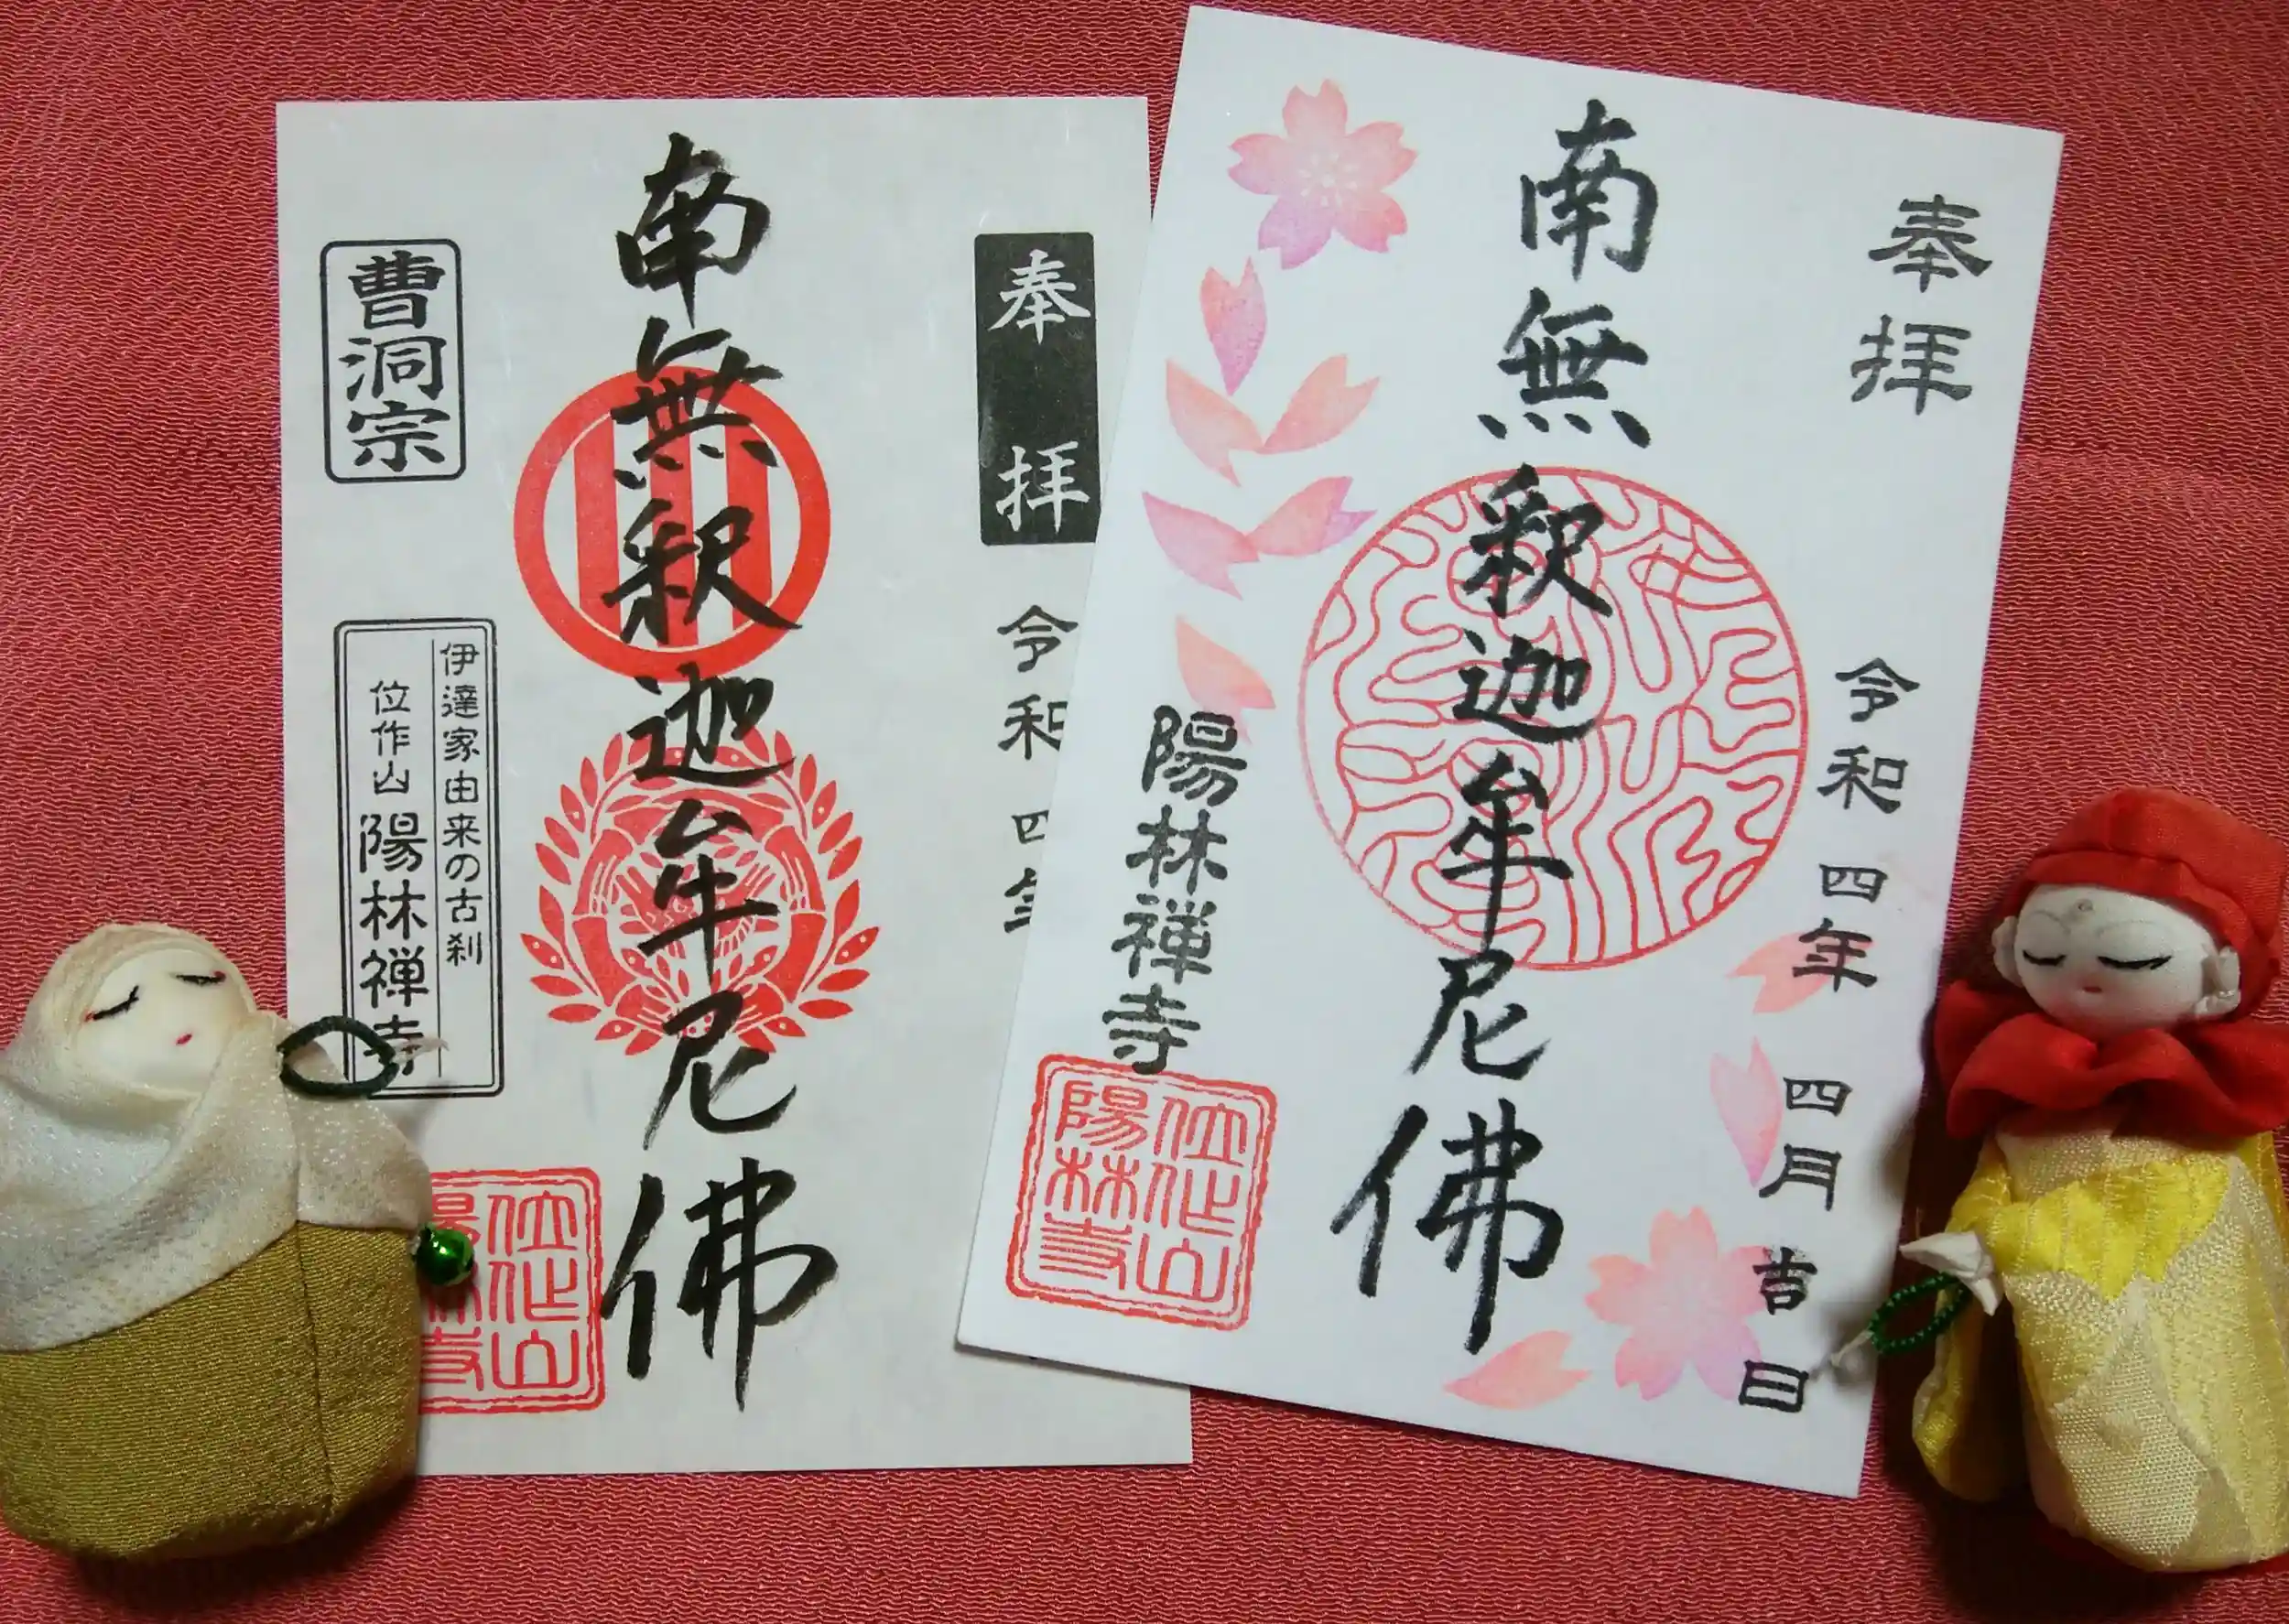 奉拝
令和四年
南無釈迦牟尼佛
曹洞宗
伊達家由来の古刹
位作山 陽林禅寺
位作山
陽林寺
奉拝
令和四年四月吉日
南無釈迦牟尼佛
陽林禅寺
位作山
陽林寺